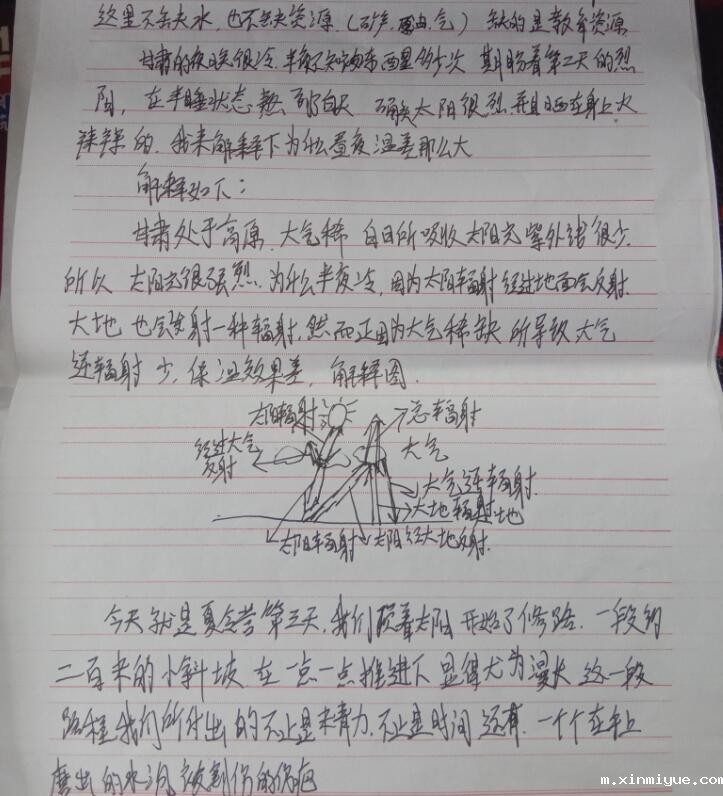 这里不缺水，也不缺资源.（矿产.原油.气） 缺的是教育资源
甘肃的夜晚很冷.半夜不知 多少次 期盼着第二天的烈
阳，在半睡状态熬到白天 确实太阳很烈.并且晒在身上火
辣辣的.我来解释下为什么昼夜温差那么大
解释如下：
甘肃处于高原.大气稀 白日所吸收太阳光紫外线很少.
所以 太阳光很强烈.为什么半夜冷，因为太阳辐射经过地面会反射.
大地也会发射一种辐射.然而正因为大气稀缺所导致大气
逆辐射少，保温效果差，解释图.
太阳辐射
总辐射
经过大气
反射
大气
大气逆辐射.
大地辐射
地
太阳辐射
太阳经大地反射.
今天就是夏令营第三天.我们顶着太阳开始了修路.一段约
二百米的小斜坡在一点一点推进下显得尤为漫长 这一段
路程我们所付出的不止是 力.不止是时间 还有.一个个在手上
磨出的水泡 被割伤的伤疤
m.xinmiyue.com